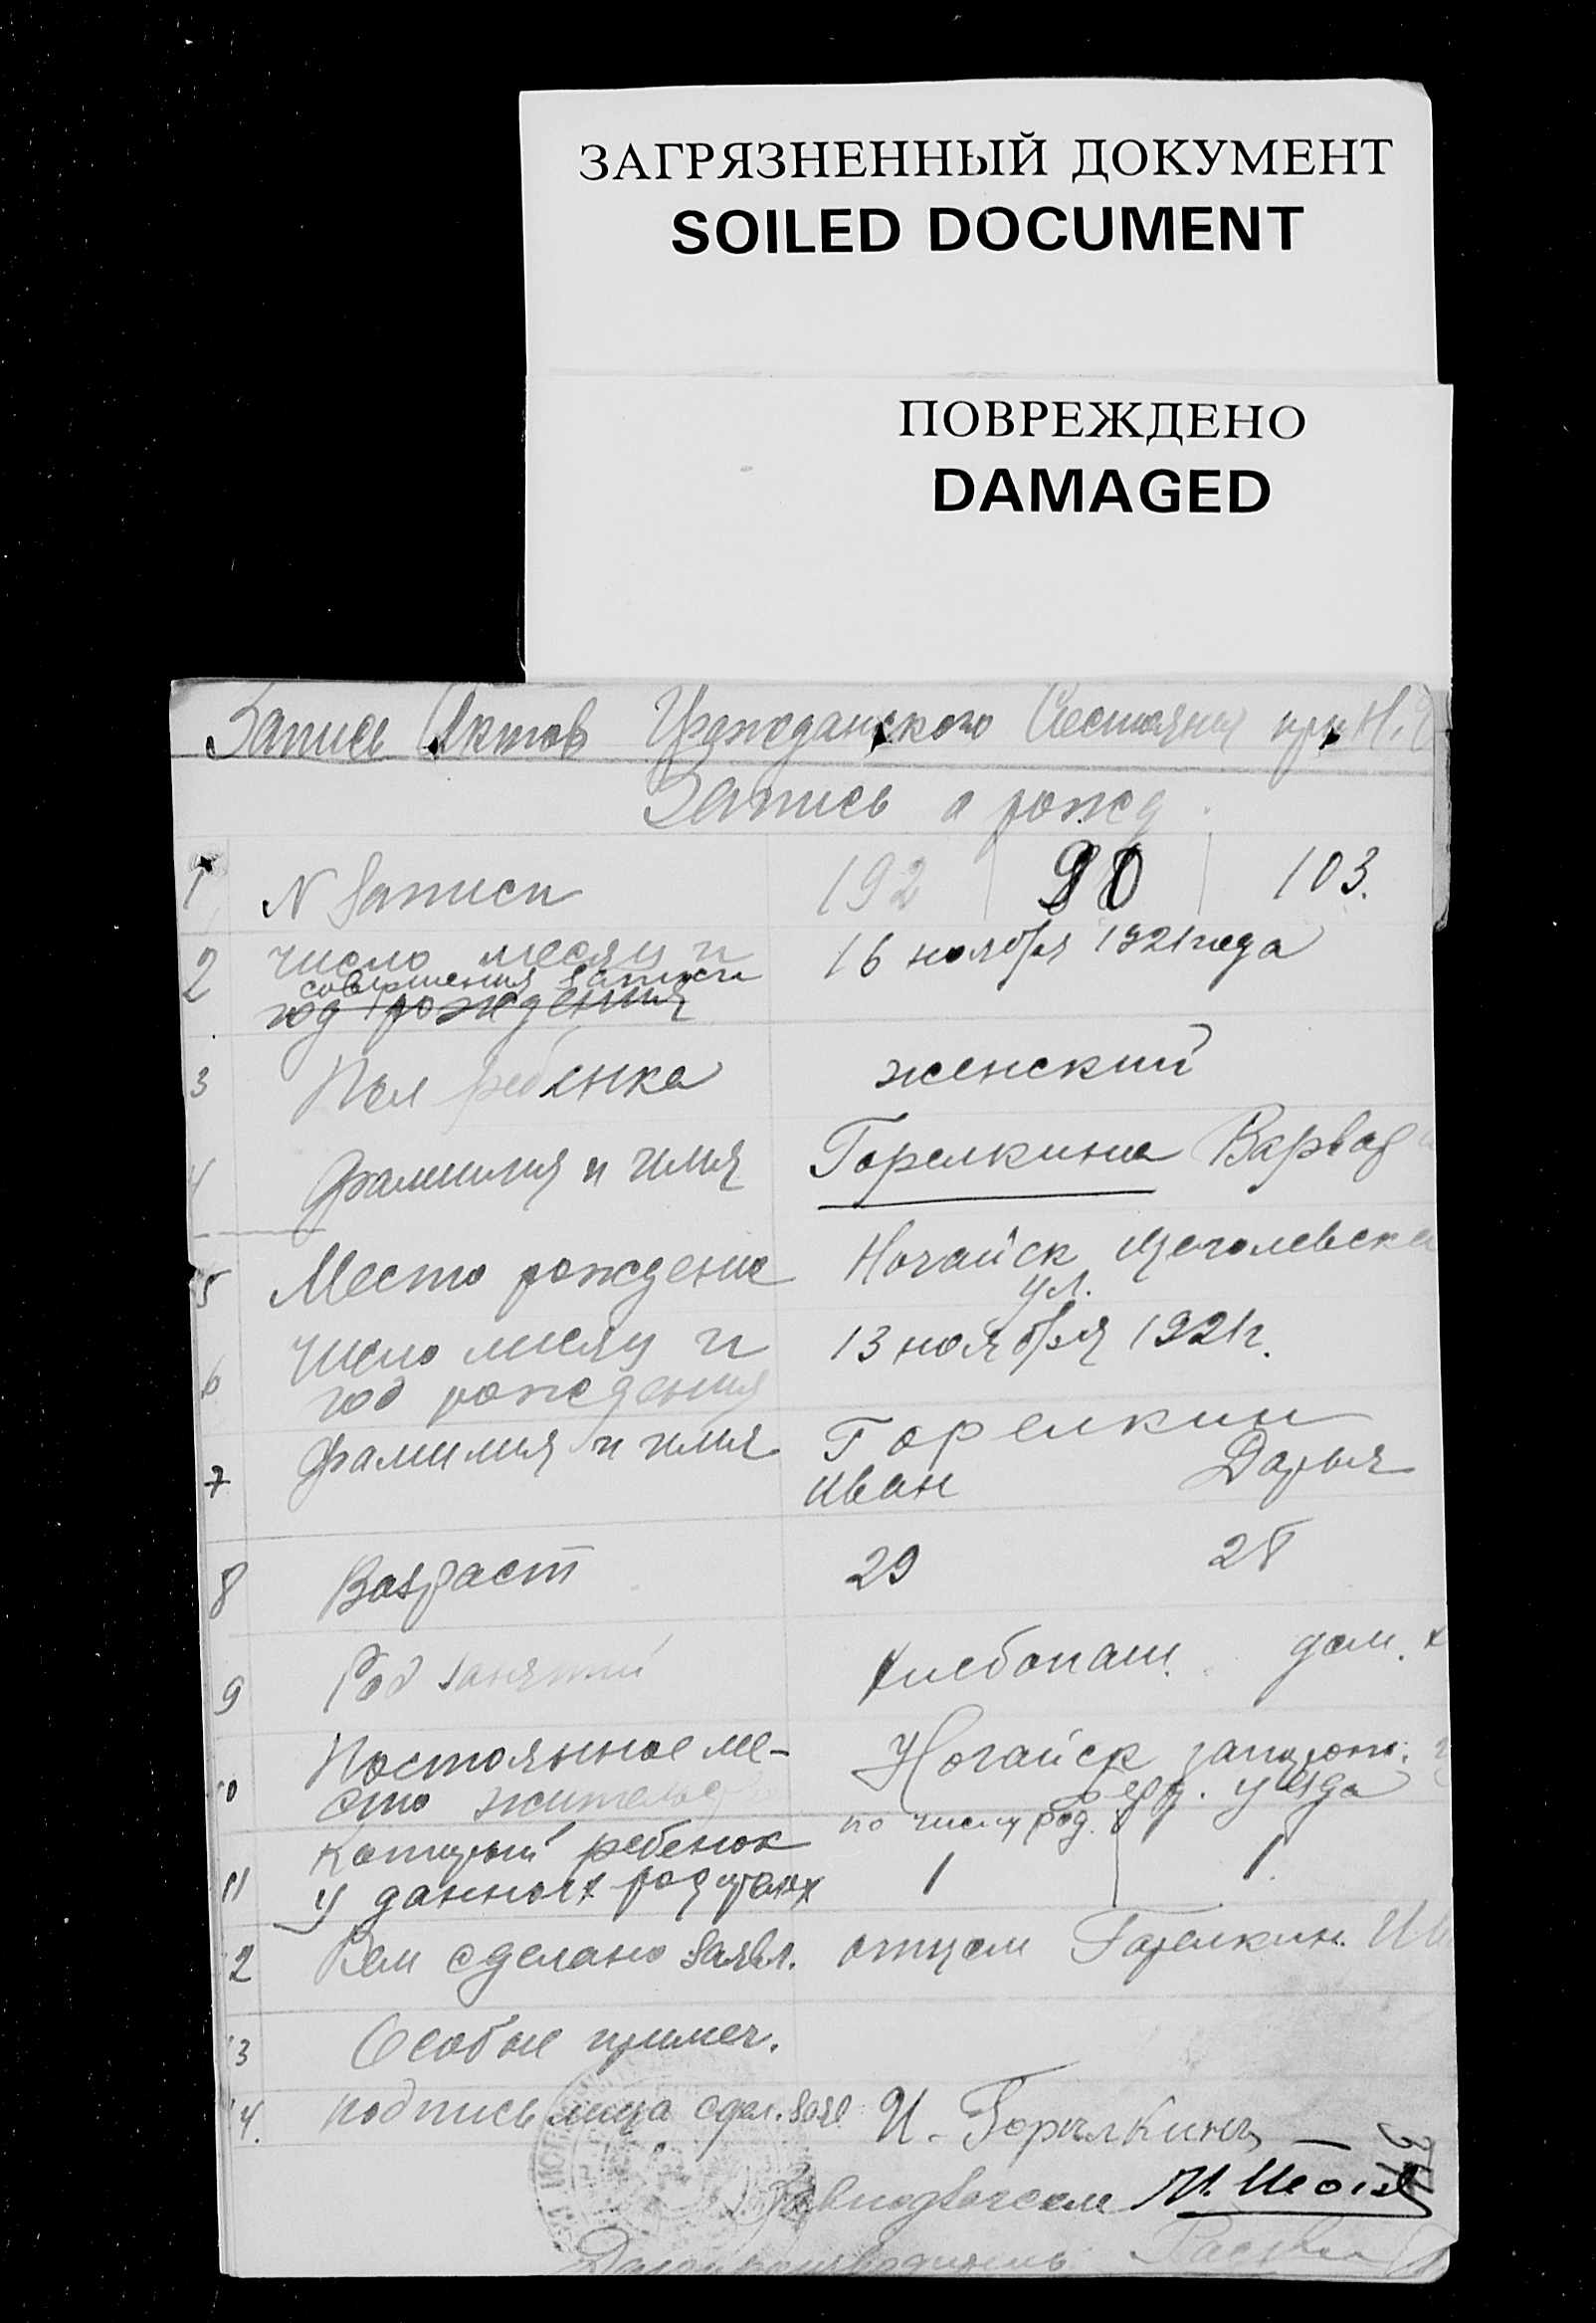 ЗАГРЯЗНЕННЫЙ ДОКУМЕНТ
SOILED DOCUMENT
ПОВРЕЖДЕНО
DAMAGED
Запись Актов Гражданского Состояния при Н.
Запись о рожд.
1 N Записи 192 90 103.
2 число месяц и 16 ноября 1921 года
совершения записи
год рождения
3 Пол ребенка женский
4 Фамилия и имя Горелкина Варвар
5 Место рождение Ногайск Щеголевска
ул.
6 Число месяц и 13 ноября 1921 г.
год рождения
7 Фамилия и имя Горелкин
Иван Дарья
8 Возраст 29 28
9 Род занятий хлебопаш. дом. х
10 Постоянное ме- Ногайск запорож.
сто жительс Берд. уезда
по числу род.
11 Который ребенок
у данных родителях 1 1
12 Кем сделано заявл. отцем Горелкин. И
13 Особые примеч.
14. подпись лица сдел. заяв. И. Горилкинъ
Завподзагсом
Делопроизводитель